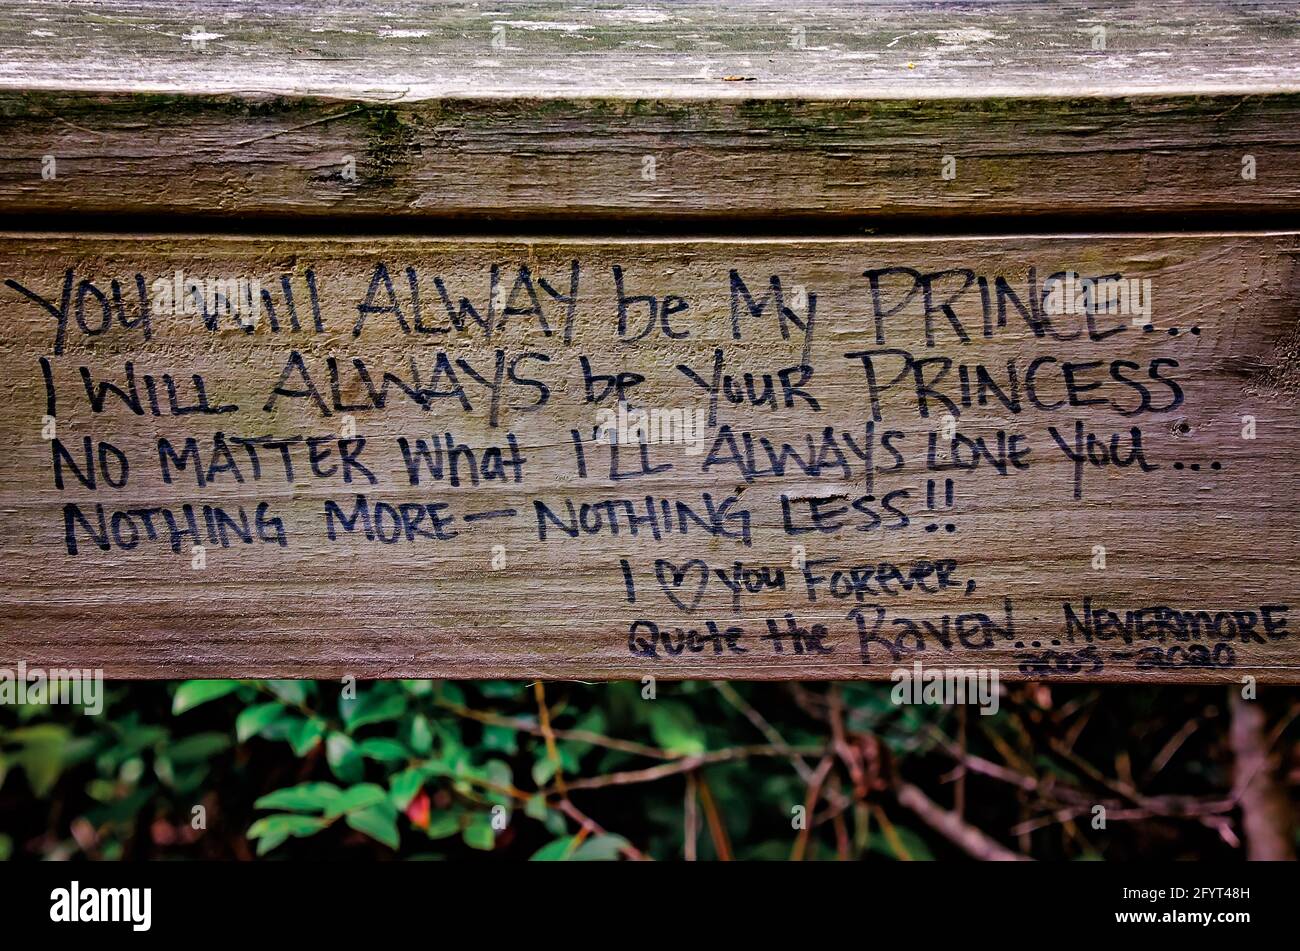 YOU Will ALWAY be My PRINCE...
I WILL ALWAYS be YOUR PRINCESS
NO MATTER What I'LL ALWAYS LOVE YOU...
NOTHING MORE — NOTHING LESS!!
I ♡ YOU FOREVER,
Quote the RAVEN!...NEVERMORE
2005-2020
alamy
Image ID: 2FYT48H
www.alamy.com